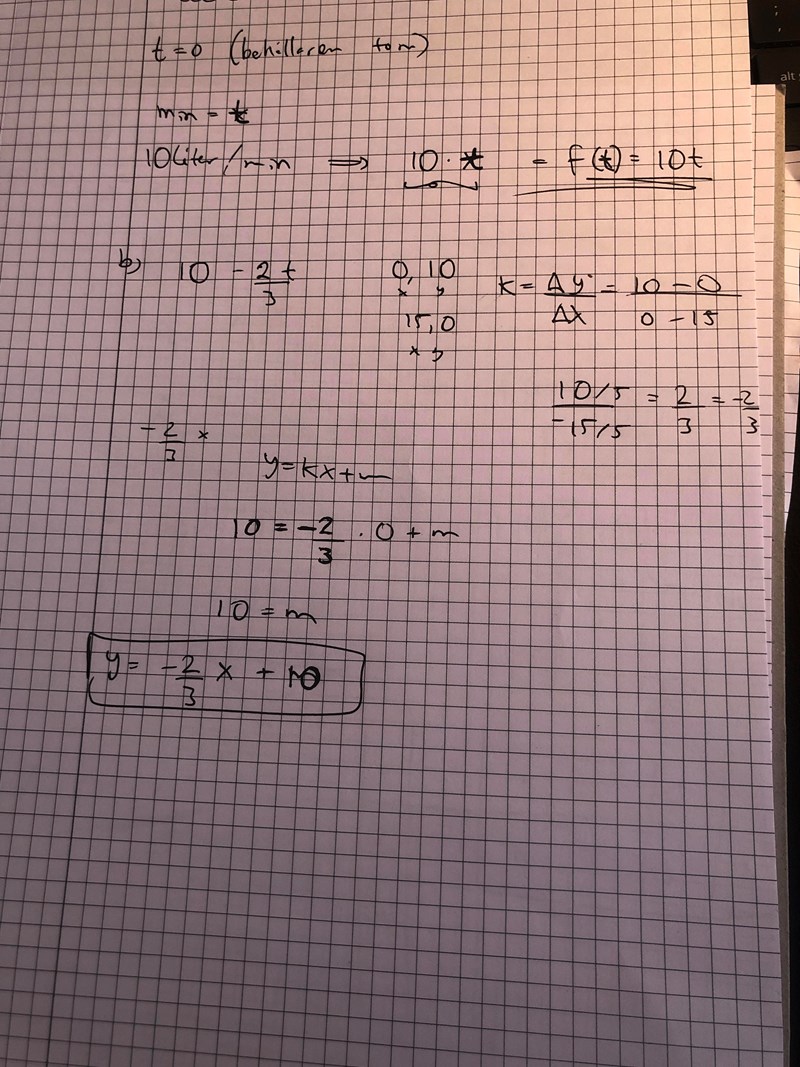 t=0 (behållaren tom)
min = t
10 liter/min ⟹ 10 · t = f(t) = 10t
b) 10 - 2/3 t
0, 10
x y
15, 0
x y
K = Δy/Δx = 10 - 0/0 - 15
10/5/-15/5 = 2/3 = -2/3
-2/3 x
y = kx + m
10 = -2/3 · 0 + m
10 = m
y = -2/3 x + 10
alt